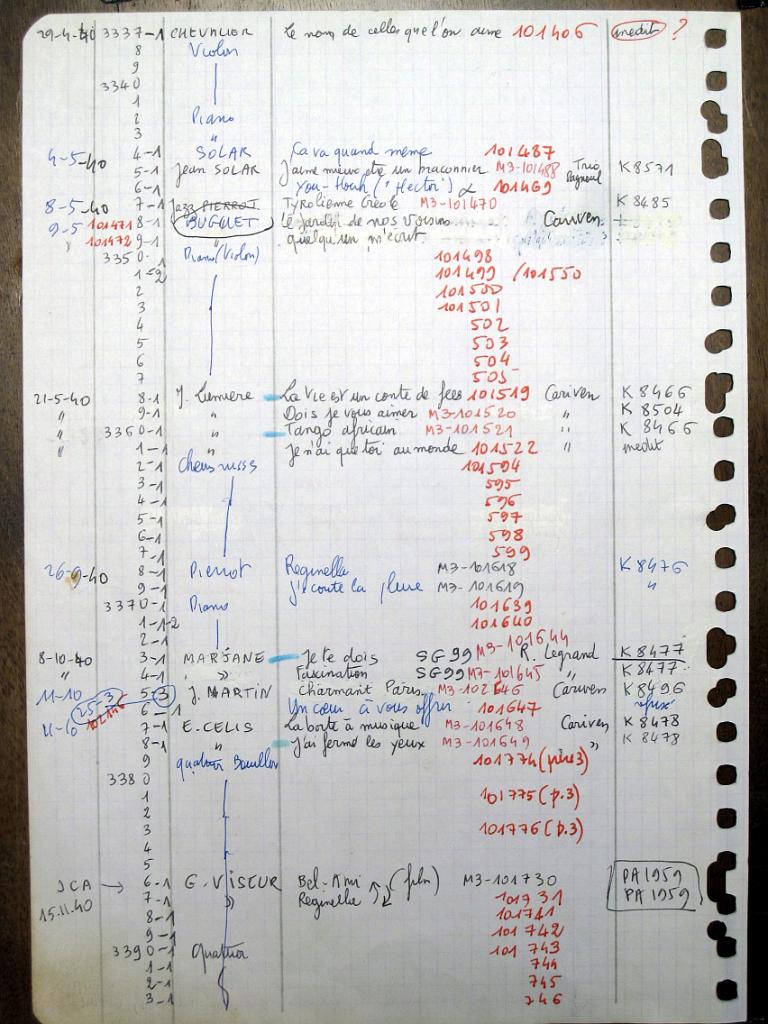 29-4-40 3337-1 CHEVALIER Le nom de celles que l'on aime 101406 inédit ?
8 Violon
9
3340
1
2 Piano
3 "
4-5-40 4-1 SOLAR Ça va quand même 101487
5-1 Jean SOLAR J'aime mieux être un braconnier M3-101488 Trio K 8571
6-1 You-Houh ("Hector") 101469
8-5-40 7-1 Jazz PIERROT Tyrolienne Créole M3-101470 K 8485
9-5 101471 8-1 BUGUET Le jardin de nos voisins Cariven
" 101472 9-1 " quelqu'un m'écrit
3350 Piano (Violon) 101498
1-2 101499 / 101550
2 101500
3 101501
4 502
5 503
6 504
7 505
21-5-40 8-1 J. Lumière La vie est un conte de fées 101519 Cariven K 8466
" 9-1 " Dois je vous aimer M3-101520 " K 8504
" 3360-1 " Tango africain M3-101521 " K 8466
" 1-1 " Je n'ai que toi au monde 101522 " inédit
2-1 101594
3-1 595
4-1 596
5-1 597
6-1 598
7-1 599
26-9-40 8-1 Pierrot Reginella M3-101618 K 8476
9-1 J'écoute la pluie M3-101619 "
3370-1 Piano 101639
1-1-2 101640
2-1 M3-101644
8-10-40 3-1 MARJANE Je te dois SG 99 R. Legrand K 8477
" 4-1 " Fascination SG 99 M3-101645 " K 8477
11-10 25-3 5-3 J. MARTIN Charmant Paris M3-102646 Cariven K 8496
102146 6-1 Un cœur à vous offrir 101647 refusé
11-10 7-1 E. CELIS La boîte à musique M3-101648 Cariven K 8478
8-1 " J'ai fermé les yeux M3-101649 " K 8478
9 Quatuor Bouillon 101774 (père 3)
3380
1 101775 (p.3)
2
3 101776 (p.3)
4
5
JCA → 6-1 G. VISEUR Bel-Ami (film) M3-101730 PA 1959
15.11.40 7-1 " Reginella 101731 PA 1959
8-1 101741
9-1 101742
3390-1 Quatuor 101 743
1-1 744
2-1 745
3-1 746